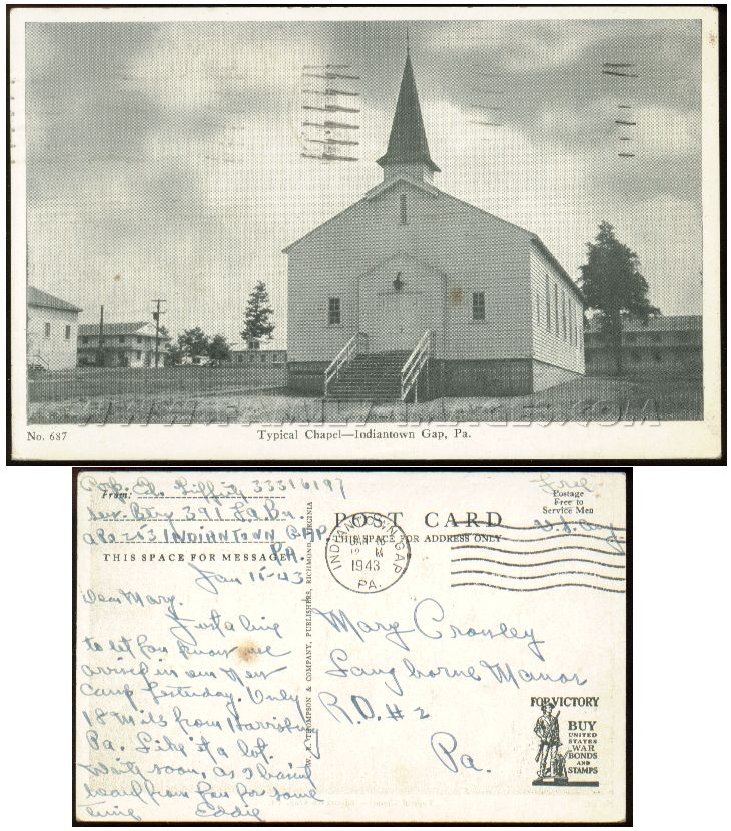 No. 687
Typical Chapel—Indiantown Gap, Pa.
WWW.FAMILY-IMAGES.COM
From: Corp. Ed. 33316197
391 F.A. Bn.
APO 253 INDIANTOWN GAP.
PA.
THIS SPACE FOR MESSAGE
Jan 11-43
Dear Mary.
Just a line
to let you know we
arrived in our new
camp yesterday. Only
18 miles from Harrisburg
Pa. Like it a lot.
Write soon, as I haven't
heard from you for some
time Eddie
THOMPSON & COMPANY, PUBLISHERS, RICHMOND, VIRGINIA
POST CARD
THIS SPACE FOR ADDRESS ONLY
INDIANTOWN GAP
JAN
12 M
1943
PA.
Free
Postage
Free to
Service Men
U.S. Army
Mary Crowley
Langhorne Manor
R.D. #2
Pa.
FOR VICTORY
BUY
UNITED
STATES
WAR
BONDS
AND
STAMPS